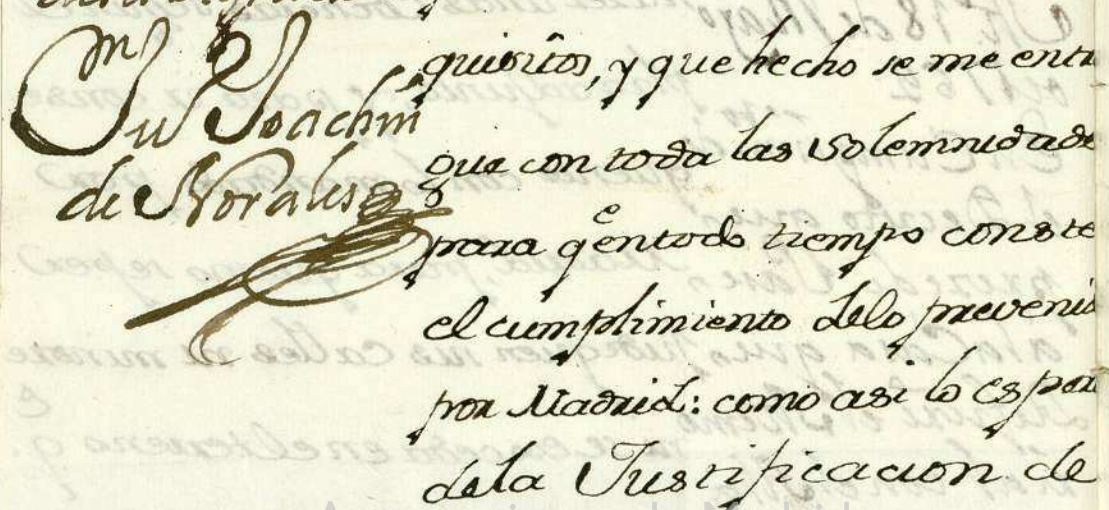 Juan Joachin
de Morales
quisitos, y que hecho se me entr
gue con toda las Solemnidade
para qe en todo tiempo conste
el cumplimiento delo prevenid
por Madrid: como asi lo espera
dela Justificacion de